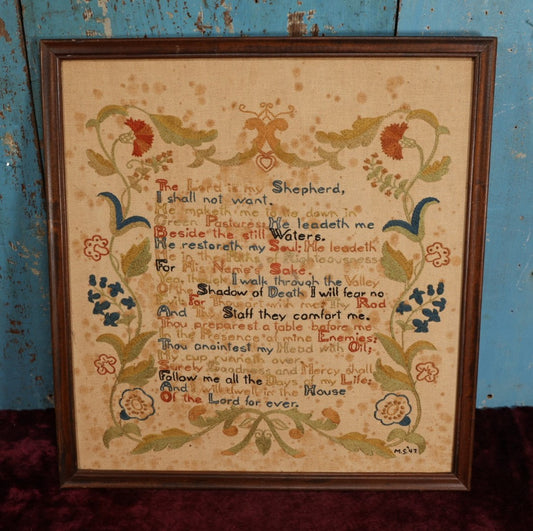 The Lord is my Shepherd,
I shall not want.
He maketh me to lie down in
Green Pastures: He leadeth me
Beside the still Waters.
He restoreth my Soul: He leadeth
Me in the Paths of Righteousness
For His Name's Sake.
Yea, though I walk through the Valley
Of the Shadow of Death I will fear no
Evil: For Thou art with me: Thy Rod
And Thy Staff they comfort me.
Thou preparest a table before me
In the Presence of mine Enemies;
Thou anointest my Head with Oil;
My cup runneth over.
Surely Goodness and Mercy shall
Follow me all the Days of my Life;
And I will dwell in the House
Of the Lord for ever.
M.S.'47